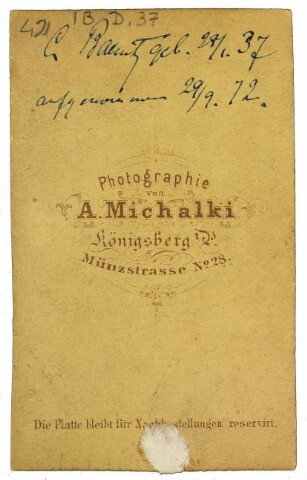 421 1B D. 37
C. Baenitz geb. 28/1. 37
aufgenommen 29/9. 72.
Photographie
von
A. Michalki
Königsberg i/Pr.
Münzstrasse No 28.
Die Platte bleibt für Nachbestellungen reservirt.